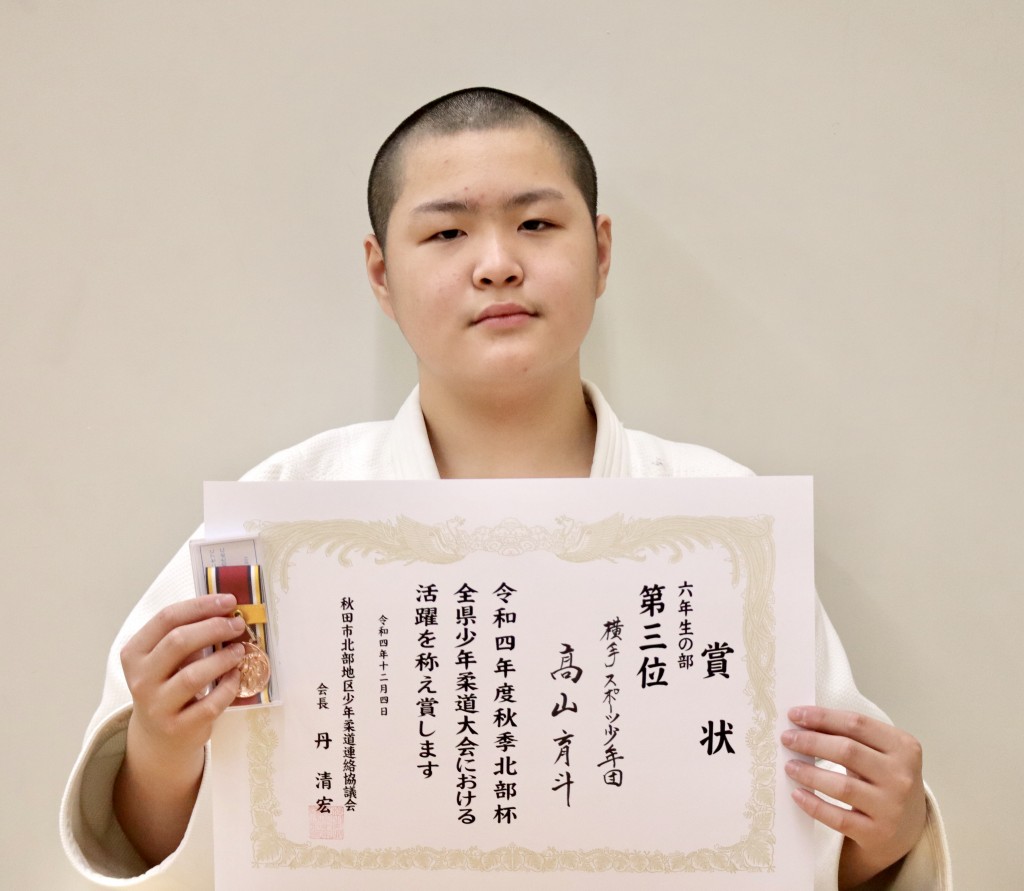 賞状
六年生の部
第三位
横手スポーツ少年団
高山育斗
令和四年度秋季北部杯
全県少年柔道大会における
活躍を称え賞します
令和四年十二月四日
秋田市北部地区少年柔道連絡協議会
会長 丹 清宏